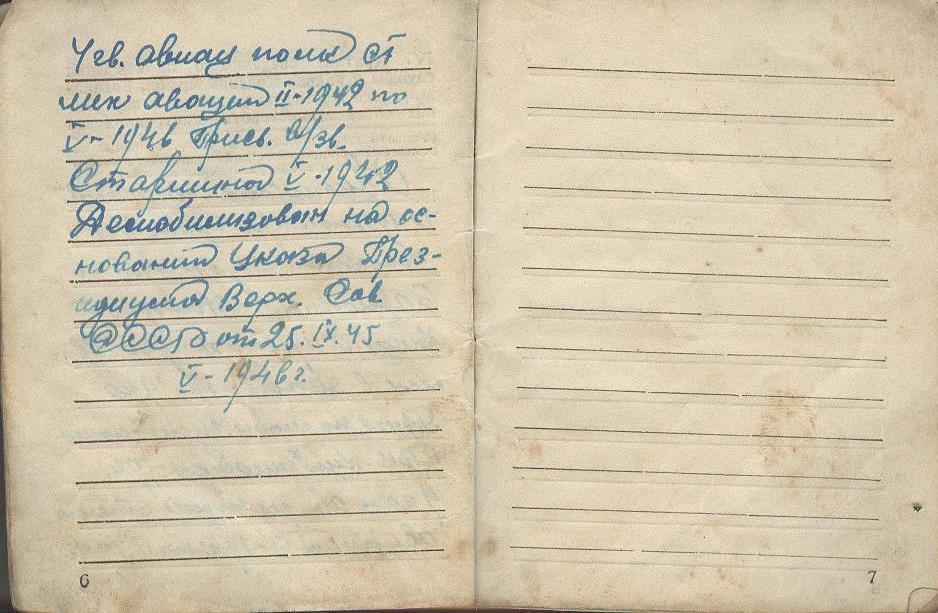 4 гв. авиац полк ст
мех авиацет II-1942 по
V-1946 Присв. в/зв.
Старшина V-1942
Демобилизован на ос-
новании Указа През-
идиума Верх. Сов
СССР от 25.IX.45
V-1946 г.
6
7